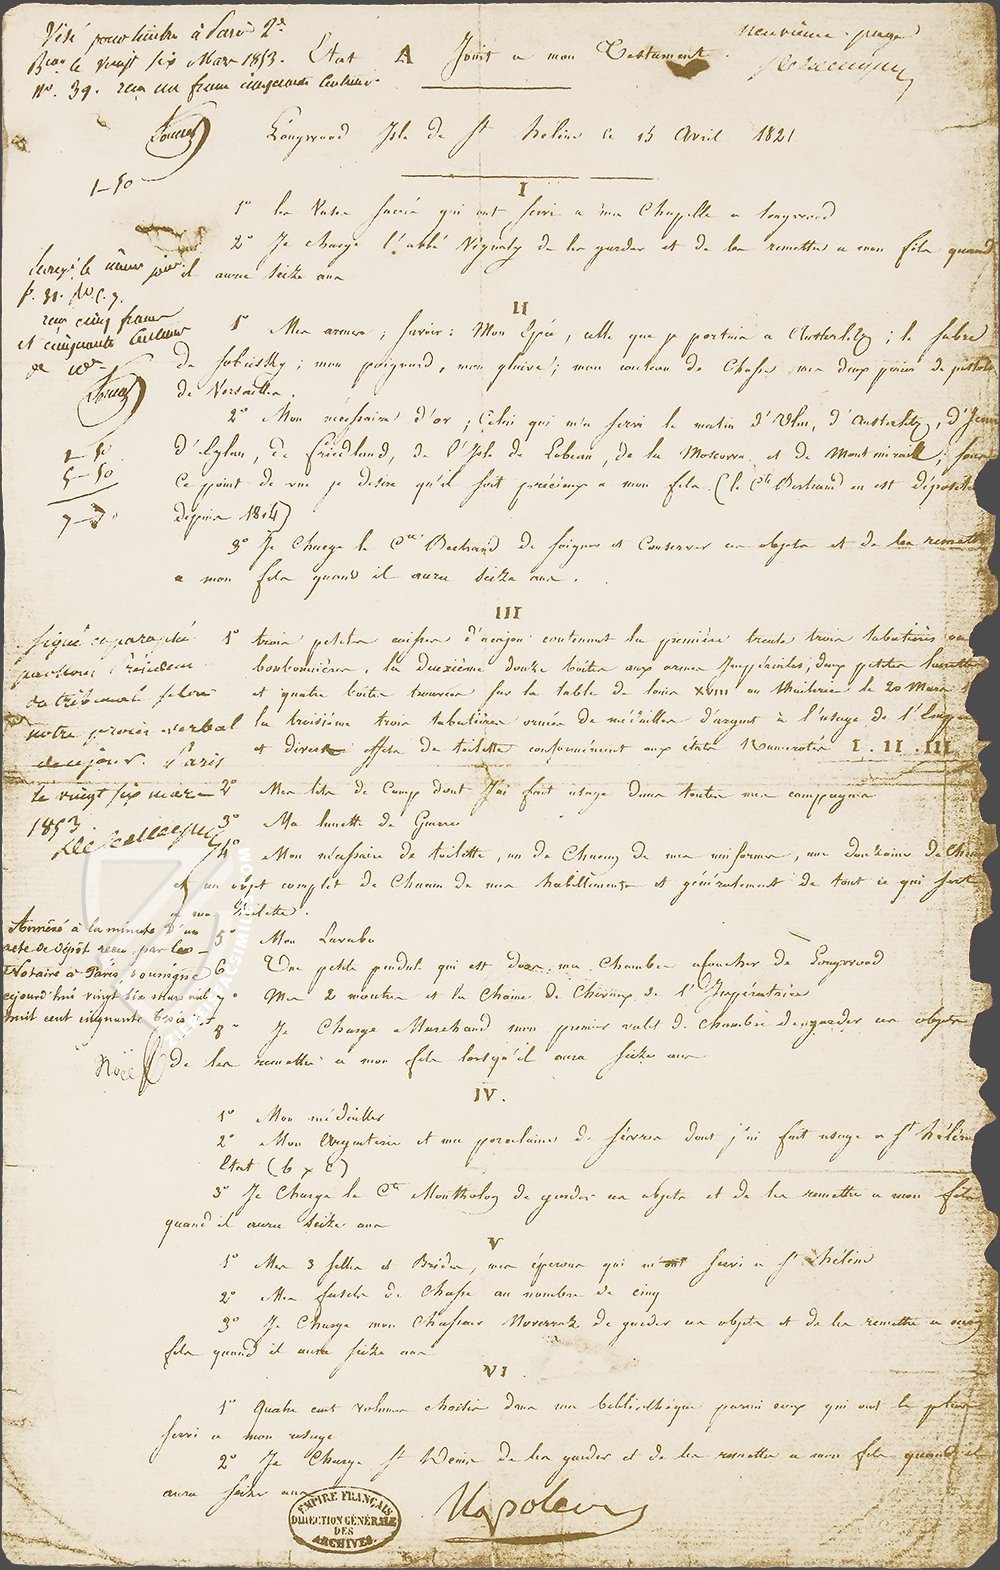 Visé pour timbre à Paris 2e
Bau le vingt six Mars 1853.
No. 39. reçu un franc cinquante centimes
Etat A Joint a mon Testament
neuvieme page
Longwood Isle de St helene ce 15 Avril 1821
1–50
I
1° les Vases sacrés qui ont servi a ma Chapelle a longwood
2° Je charge l'abbé Vignaly de les garder et de les remettre a mon fils quand
il aura seize ans
Enregé. le même jour
f. 31. No C. 7.
reçu cinq francs
et cinquante centimes
de 10e
II
1° Mes armes ; savoir : Mon Epée, celle que je portais a Austerlitz ; le sabre
de Sobiesky ; mon poignard, mon glaive ; mon couteau de Chasse mes deux paires de pistolets
de Versailles.
2° Mon nécessaire d'or ; Celui qui m'a servi le matin d'Ulm, d'Austerlitz, d'Jena
d'Eylau, de Friedland, de l'Isle de Lobeau, de la Moscowa et de Montmiraill ; sous
Ce point de vue je desire qu'il soit précieux a mon fils. (le Cte Bertrand en est dépositaire
depuis 1814)
1–50
5–50
7–»
3° Je Charge le Cte Bertrand de soigner et Conserver ces objets et de les remettre
a mon fils quand il aura seize ans.
III
1° trois petites caisses d'acajou contenant la première trente trois tabatières ou
bonbonnières, la deuxième douze boîtes aux armes Impériales, deux petites lunettes
et quatre boîtes trouvées sur la table de louis XVIII au Thuileries le 20 Mars
la troisième trois tabatières ornées de médailles d'argent à l'usage de l'Empereur
et divers effets de toilette conformément aux états Numérotés I. II. III
signé et paraphé
par nous Président
du tribunal selon
notre procès verbal
de ce jour. Paris
le vingt six mars
1853
2° Mes lits de Camp dont J'ai fait usage dans toutes mes campagnes
3° Ma lunette de Guerre
4° Mon nécessaire de toilette, un de Chacun de mes uniformes, une douzaine de Chemises
et un objet complet de Chacun de mes habillements et généralement de tout ce qui sert
a ma toilette.
5° Mon Lavabo
6° Une petite pendule qui est dans ma Chambre a coucher de Longwood
7° Mes 2 montres et la Chaine de Cheveux de l'Impératrice
8° Je Charge Marchand mon premier valet de chambre de garder ces objets
de les remettre a mon fils lorsqu'il aura seize ans
Annéxé à la minute d'un
acte de dépôt reçu par les
Notaires à Paris soussignés
cejourd'hui vingt six mars mil
huit cent cinquante trois
Noël
ZIEREIS FACSIMILES.COM
IV.
1° Mon médailler
2° Mon Argenterie et ma porcelaine de sèvres dont j'ai fait usage a St héléne
Etat (b & c)
3° Je Charge le Cte Montholon de garder ces objets et de les remettre a mon fils
quand il aura seize ans
V
1° Mes 3 selles et Brides, mes éperons qui m'ont servi a St héléne
2° Mes fusils de Chasse au nombre de cinq
3° Je Charge mon Chasseur Noverraz de garder ces objets et de les remettre a mon
fils quand il aura seize ans
VI.
1° Quatre cent volumes choisis dans ma bibliothèque parmi ceux qui ont le plus
servi a mon usage
2° Je Charge St Denis de les garder et de les remettre a mon fils quand il
aura seize ans
Napoleon
EMPIRE FRANÇAIS
DIRECTION GÉNÉRALE
DES
ARCHIVES.